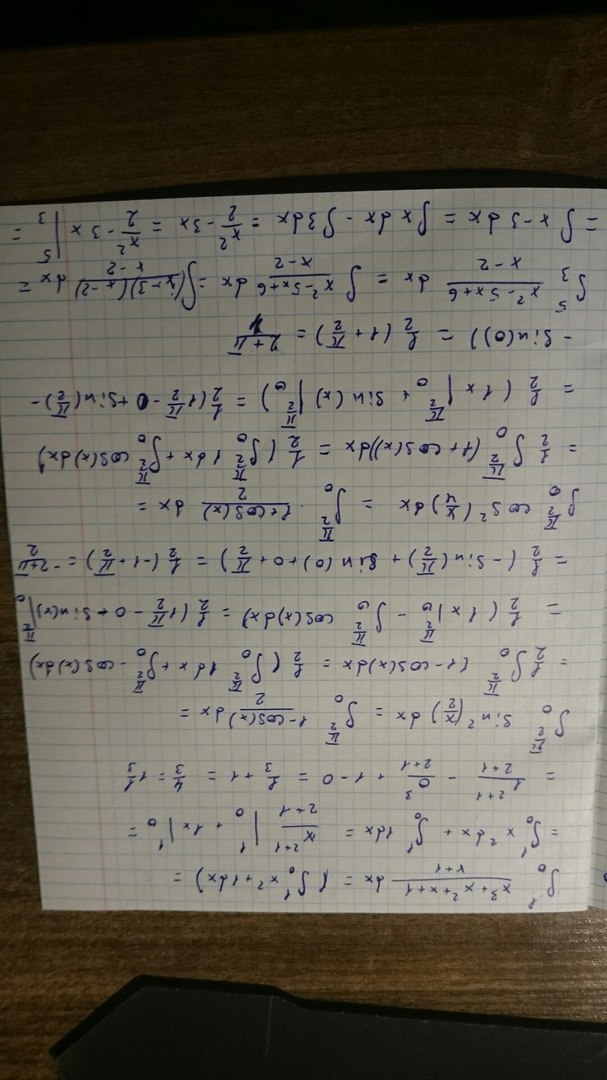 ∫₀¹ (x³+x²+x+1)/(x+1) dx = (∫₀¹ x²+1dx) =
= ∫₀¹ x²dx + ∫₀¹ 1dx = x²⁺¹/(2+1) |₀¹ + 1x|₀¹ =
= 1²⁺¹/(2+1) - 0³/(2+1) + 1 - 0 = 1/3 + 1 = 4/3 = 1 1/3
∫₀^(π/2) sin²(x/2) dx = ∫₀^(π/2) (1-cos(x))/2 dx =
= 1/2 ∫₀^(π/2) (1-cos(x))dx = 1/2 (∫₀^(π/2) 1dx + ∫₀^(π/2) -cos(x)dx)
= 1/2 (1x|₀^(π/2) - ∫₀^(π/2) cos(x)dx) = 1/2 (1 π/2 - 0 + sin(x)|₀^(π/2)
= 1/2 (-sin(π/2) + sin(0) + 0 + π/2) = 1/2 (-1 + π/2) = (-2+π)/2
∫₀^(π/2) cos²(x/4) dx = ∫₀^(π/2) (1+cos(x))/2 dx =
= 1/2 ∫₀^(π/2) (1+cos(x))dx = 1/2 (∫₀^(π/2) 1dx + ∫₀^(π/2) cos(x)dx)
= 1/2 (1x|₀^(π/2) + sin(x)|₀^(π/2)) = 1/2 (1 π/2 - 0 + sin(π/2) -
- sin(0)) = 1/2 (1 + π/2) = (2+π)/4
∫₃⁵ (x²-5x+6)/(x-2) dx = ∫ (x²-5x+6)/(x-2) dx = ∫ (x-3)(x-2)/(x-2) dx =
= ∫ x-3 dx = ∫ x dx - ∫ 3dx = x²/2 - 3x = x²/2 - 3x |₃⁵ =